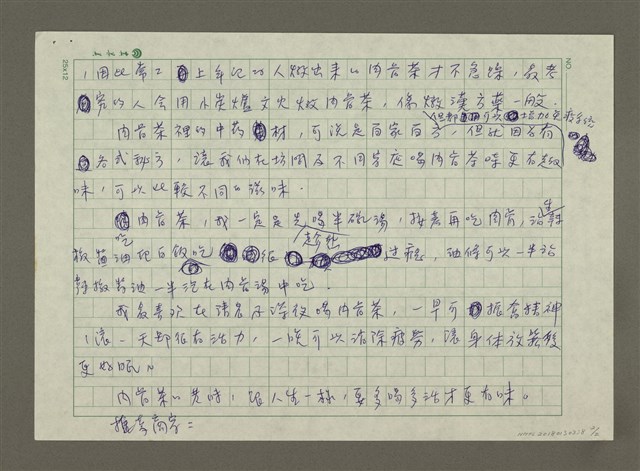 25x12
NO.
，因此常工上年記的人燉出來的肉骨茶才不急躁，最老
實的人會用小炭爐文火燉肉骨茶，像燉漢方藥一般。
但都可以增加免疫系統
肉骨茶裡的中藥材，可說是百家百方，但比因各有
各式部方，讓我們在坊間及不同家庭喝肉骨茶時更有趣
味，可以比較不同的滋味。
肉骨茶，我一定是先喝半碗湯，接著再吃肉骨，沾生辣
椒醬油配白飯吃 很 過癮，油條可以一半沾
辣椒醬油一半泡在肉骨湯中吃。
我最喜歡在清晨及深夜喝肉骨茶，一早可振奮精神
，讓一天都很有活力，一晚可以消除疲勞，讓身體放鬆後
更好眠。
肉骨茶的美味，跟人生一樣，要多喝多活才更有味。
推荐商家：